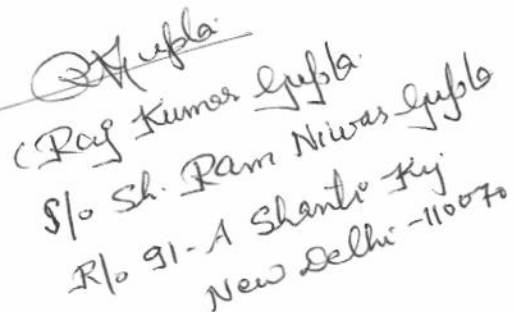 RKGupta
(Raj Kumar Gupta
S/o Sh. Ram Niwas Gupta
R/o 91-A Shanti Kj
New Delhi-110070